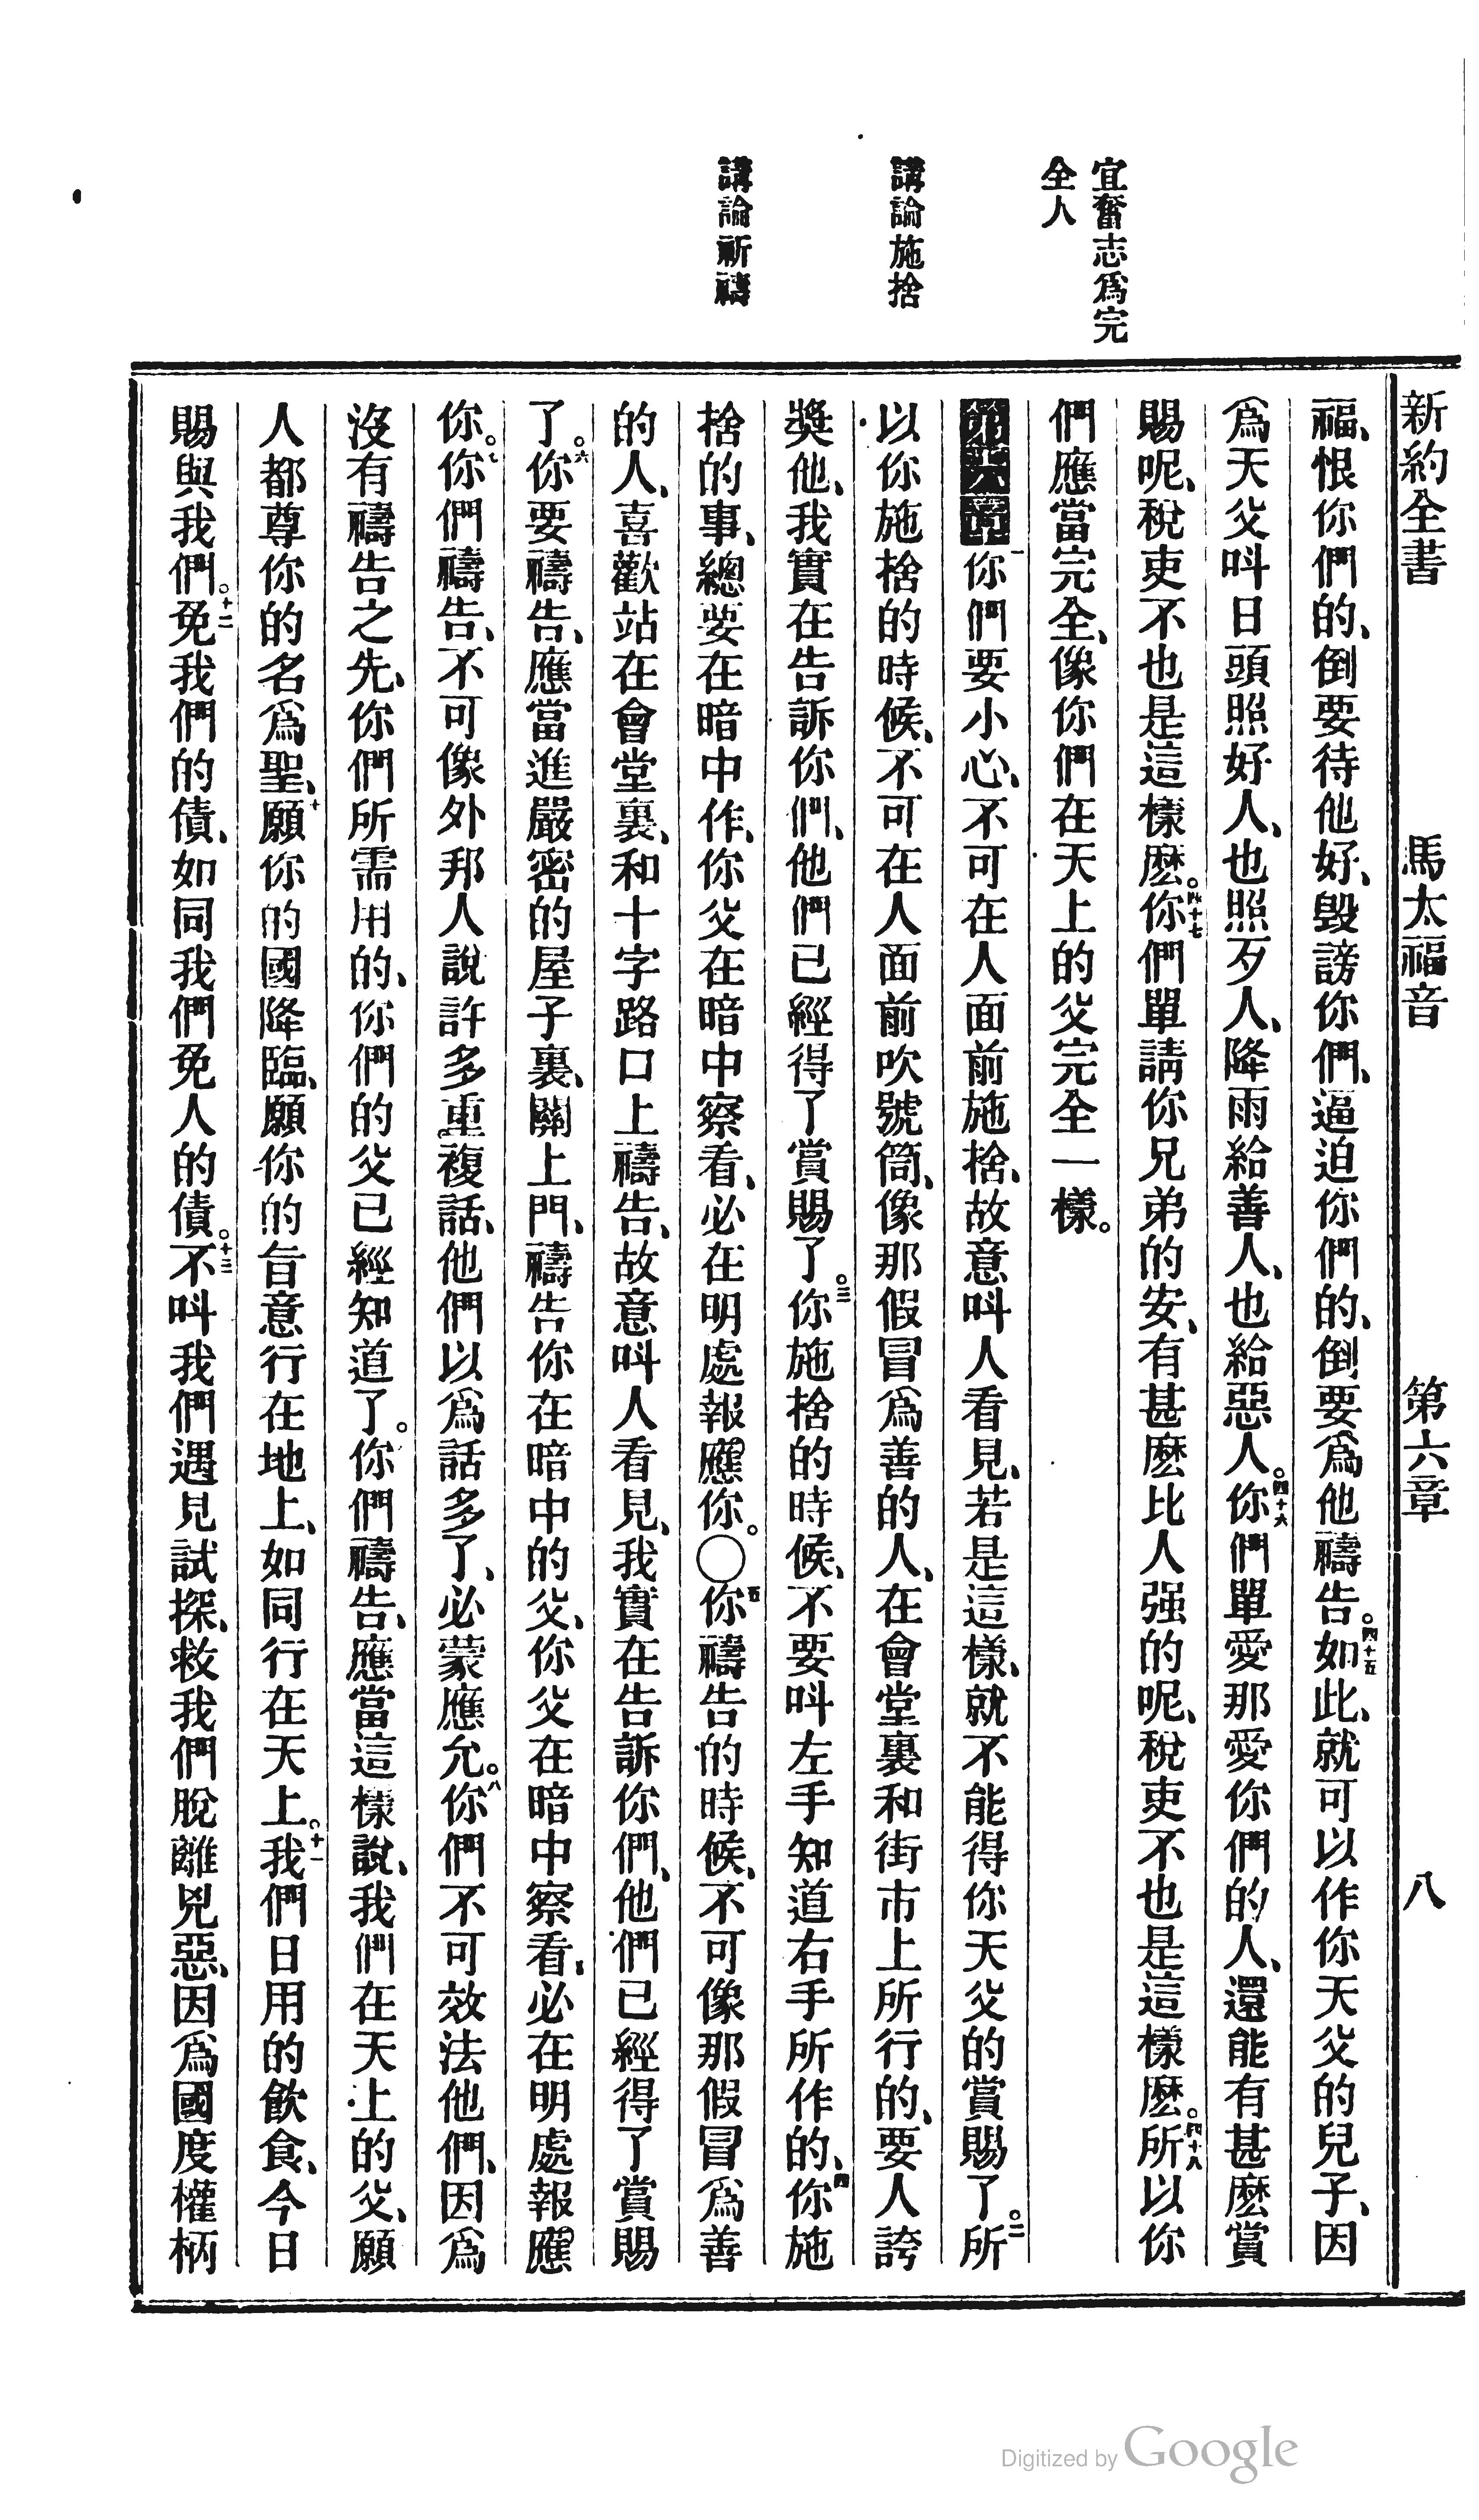 新約全書 馬太福音 第六章 八
宜奮志爲完
全人
講論施捨
講論祈禱
福、恨你們的、倒要待他好、毀謗你們、逼迫你們的、倒要爲他禱告。四十五如此、就可以作你天父的兒子、因
爲天父呌日頭照好人、也照歹人、降雨給善人、也給惡人。四十六你們單愛那愛你們的人、還能有甚麽賞
賜呢、稅吏不也是這樣麽。四十七你們單請你兄弟的安、有甚麽比人强的呢、稅吏不也是這樣麽。四十八所以你
們應當完全、像你們在天上的父完全一樣。
第六章一你們要小心、不可在人面前施捨、故意呌人看見、若是這樣、就不能得你天父的賞賜了。二所
以你施捨的時候、不可在人面前吹號筒、像那假冒爲善的人、在會堂裏和街市上所行的、要人誇
奬他、我實在告訴你們、他們已經得了賞賜了。三你施捨的時候、不要呌左手知道右手所作的、四你施
捨的事、總要在暗中作、你父在暗中察看、必在明處報應你。〇五你禱告的時候、不可像那假冒爲善
的人、喜歡站在會堂裏、和十字路口上禱告、故意呌人看見、我實在告訴你們、他們已經得了賞賜
了。六你要禱告、應當進嚴密的屋子裏、關上門、禱告你在暗中的父、你父在暗中察看、必在明處報應
你。七你們禱告、不可像外邦人說許多重複話、他們以爲話多了、必蒙應允。八你們不可效法他們、因爲
沒有禱告之先、你們所需用的、你們的父已經知道了。你們禱告、應當這樣說、我們在天上的父、願
人都尊你的名爲聖、十願你的國降臨、願你的旨意行在地上、如同行在天上。十一我們日用的飲食、今日
賜與我們。十二免我們的債、如同我們免人的債。十三不呌我們遇見試探、救我們脫離兇惡、因爲國度權柄
Digitized by Google